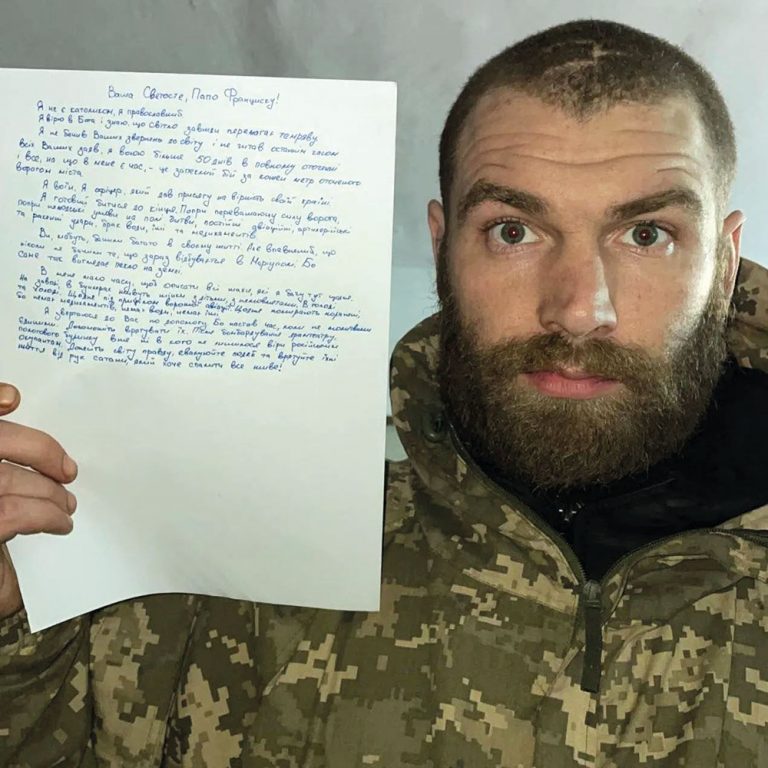 Ваша Святосте, Папо Франциску!
Я не є католиком, я православний.
Я вірю в Бога і знаю, що світло завжди перемагає темряву.
Я не бачив Ваших звернень до світу і не читав останнім часом
всіх Ваших заяв, я воюю більше 50 днів в повному оточенні
і все, на що в мене є час, - це запеклий бій за кожен метр оточеного
ворогом міста.
Я воїн. Я офіцер, який дав присягу на вірність своїй країні.
Я готовий битися до кінця. Попри переважаючу силу ворога,
попри нелюдські умови на полі битви, постійні авіаційні, артилерійські
та ракетні удари, брак води, їжі та медикаментів.
Ви, мабуть, бачили багато в своєму житті. Але впевнений, що
ніколи не бачили те, що зараз відбувається в Маріуполі. Бо
саме так виглядає пекло на землі.
В мене мало часу, щоб описати всі жахи, які я бачу тут щодня.
На заводі, в бункерах живуть жінки з дітьми, з немовлятами. В голоді
та холоді. Щодня під прицілом ворожої авіації. Щодня помирають поранені,
бо немає медикаментів, немає води, немає їжі.
Я звертаюся до Вас по допомогу. Бо настав час, коли не молитвами
єдиними. Допоможіть врятувати їх. Після бомбардування драмтеатру,
пологового будинку вже ні в кого не лишилося віри російським
окупантам. Донесіть світу правду, евакуюйте людей та врятуйте їхні
життя від рук сатани, який хоче спалити все живе!